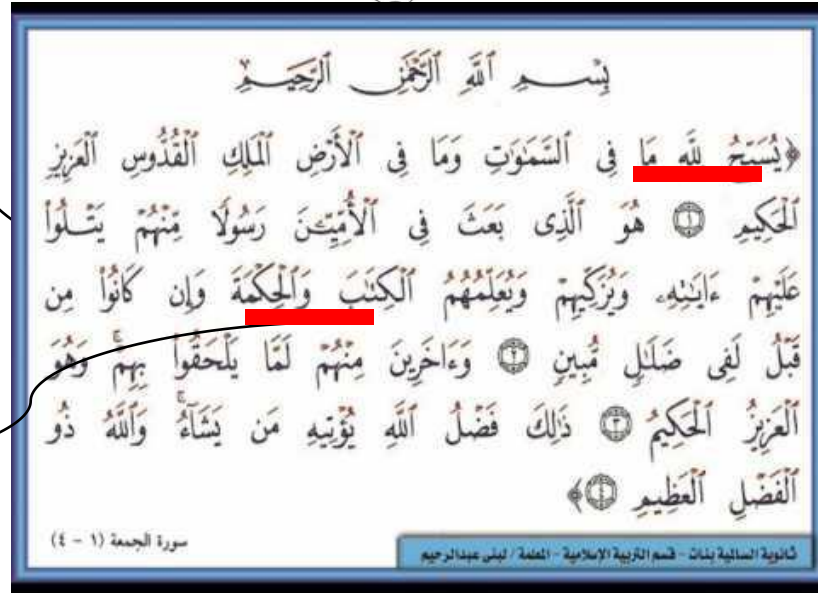 بِسْمِ ٱللَّهِ ٱلرَّحْمَٰنِ ٱلرَّحِيمِ
﴿يُسَبِّحُ لِلَّهِ مَا فِى ٱلسَّمَٰوَٰتِ وَمَا فِى ٱلْأَرْضِ ٱلْمَلِكِ ٱلْقُدُّوسِ ٱلْعَزِيزِ
ٱلْحَكِيمِ ۝١ هُوَ ٱلَّذِى بَعَثَ فِى ٱلْأُمِّيِّـۧنَ رَسُولًا مِّنْهُمْ يَتْلُوا۟
عَلَيْهِمْ ءَايَٰتِهِۦ وَيُزَكِّيهِمْ وَيُعَلِّمُهُمُ ٱلْكِتَٰبَ وَٱلْحِكْمَةَ وَإِن كَانُوا۟ مِن
قَبْلُ لَفِى ضَلَٰلٍ مُّبِينٍ ۝٢ وَءَاخَرِينَ مِنْهُمْ لَمَّا يَلْحَقُوا۟ بِهِمْ ۚ وَهُوَ
ٱلْعَزِيزُ ٱلْحَكِيمُ ۝٣ ذَٰلِكَ فَضْلُ ٱللَّهِ يُؤْتِيهِ مَن يَشَآءُ ۚ وَٱللَّهُ ذُو
ٱلْفَضْلِ ٱلْعَظِيمِ ۝٤﴾
سورة الجمعة (١ - ٤)
ثانوية السالمية بنات - قسم التربية الإسلامية - المعلمة / لبنى عبدالرحيم